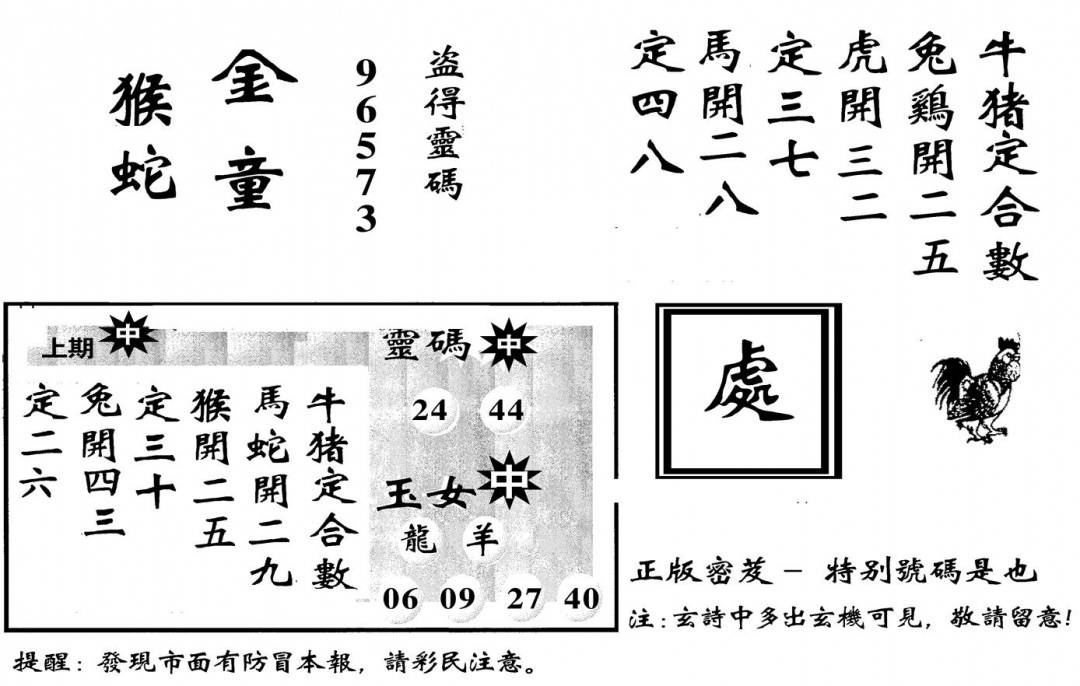 牛猪定合數
兔鷄開二五
虎開三二
定三七
馬開二八
定四八
盗得靈碼
96573
金童
猴蛇
上期
中
牛猪定合數
馬蛇開二九
猴開二五
定三十
兔開四三
定二六
靈碼
中
24 44
玉女
中
龍 羊
06 09 27 40
處
正版密芨－特别號碼是也
注:玄詩中多出玄機可見，敬請留意!
提醒：發現市面有防冒本報，請彩民注意。